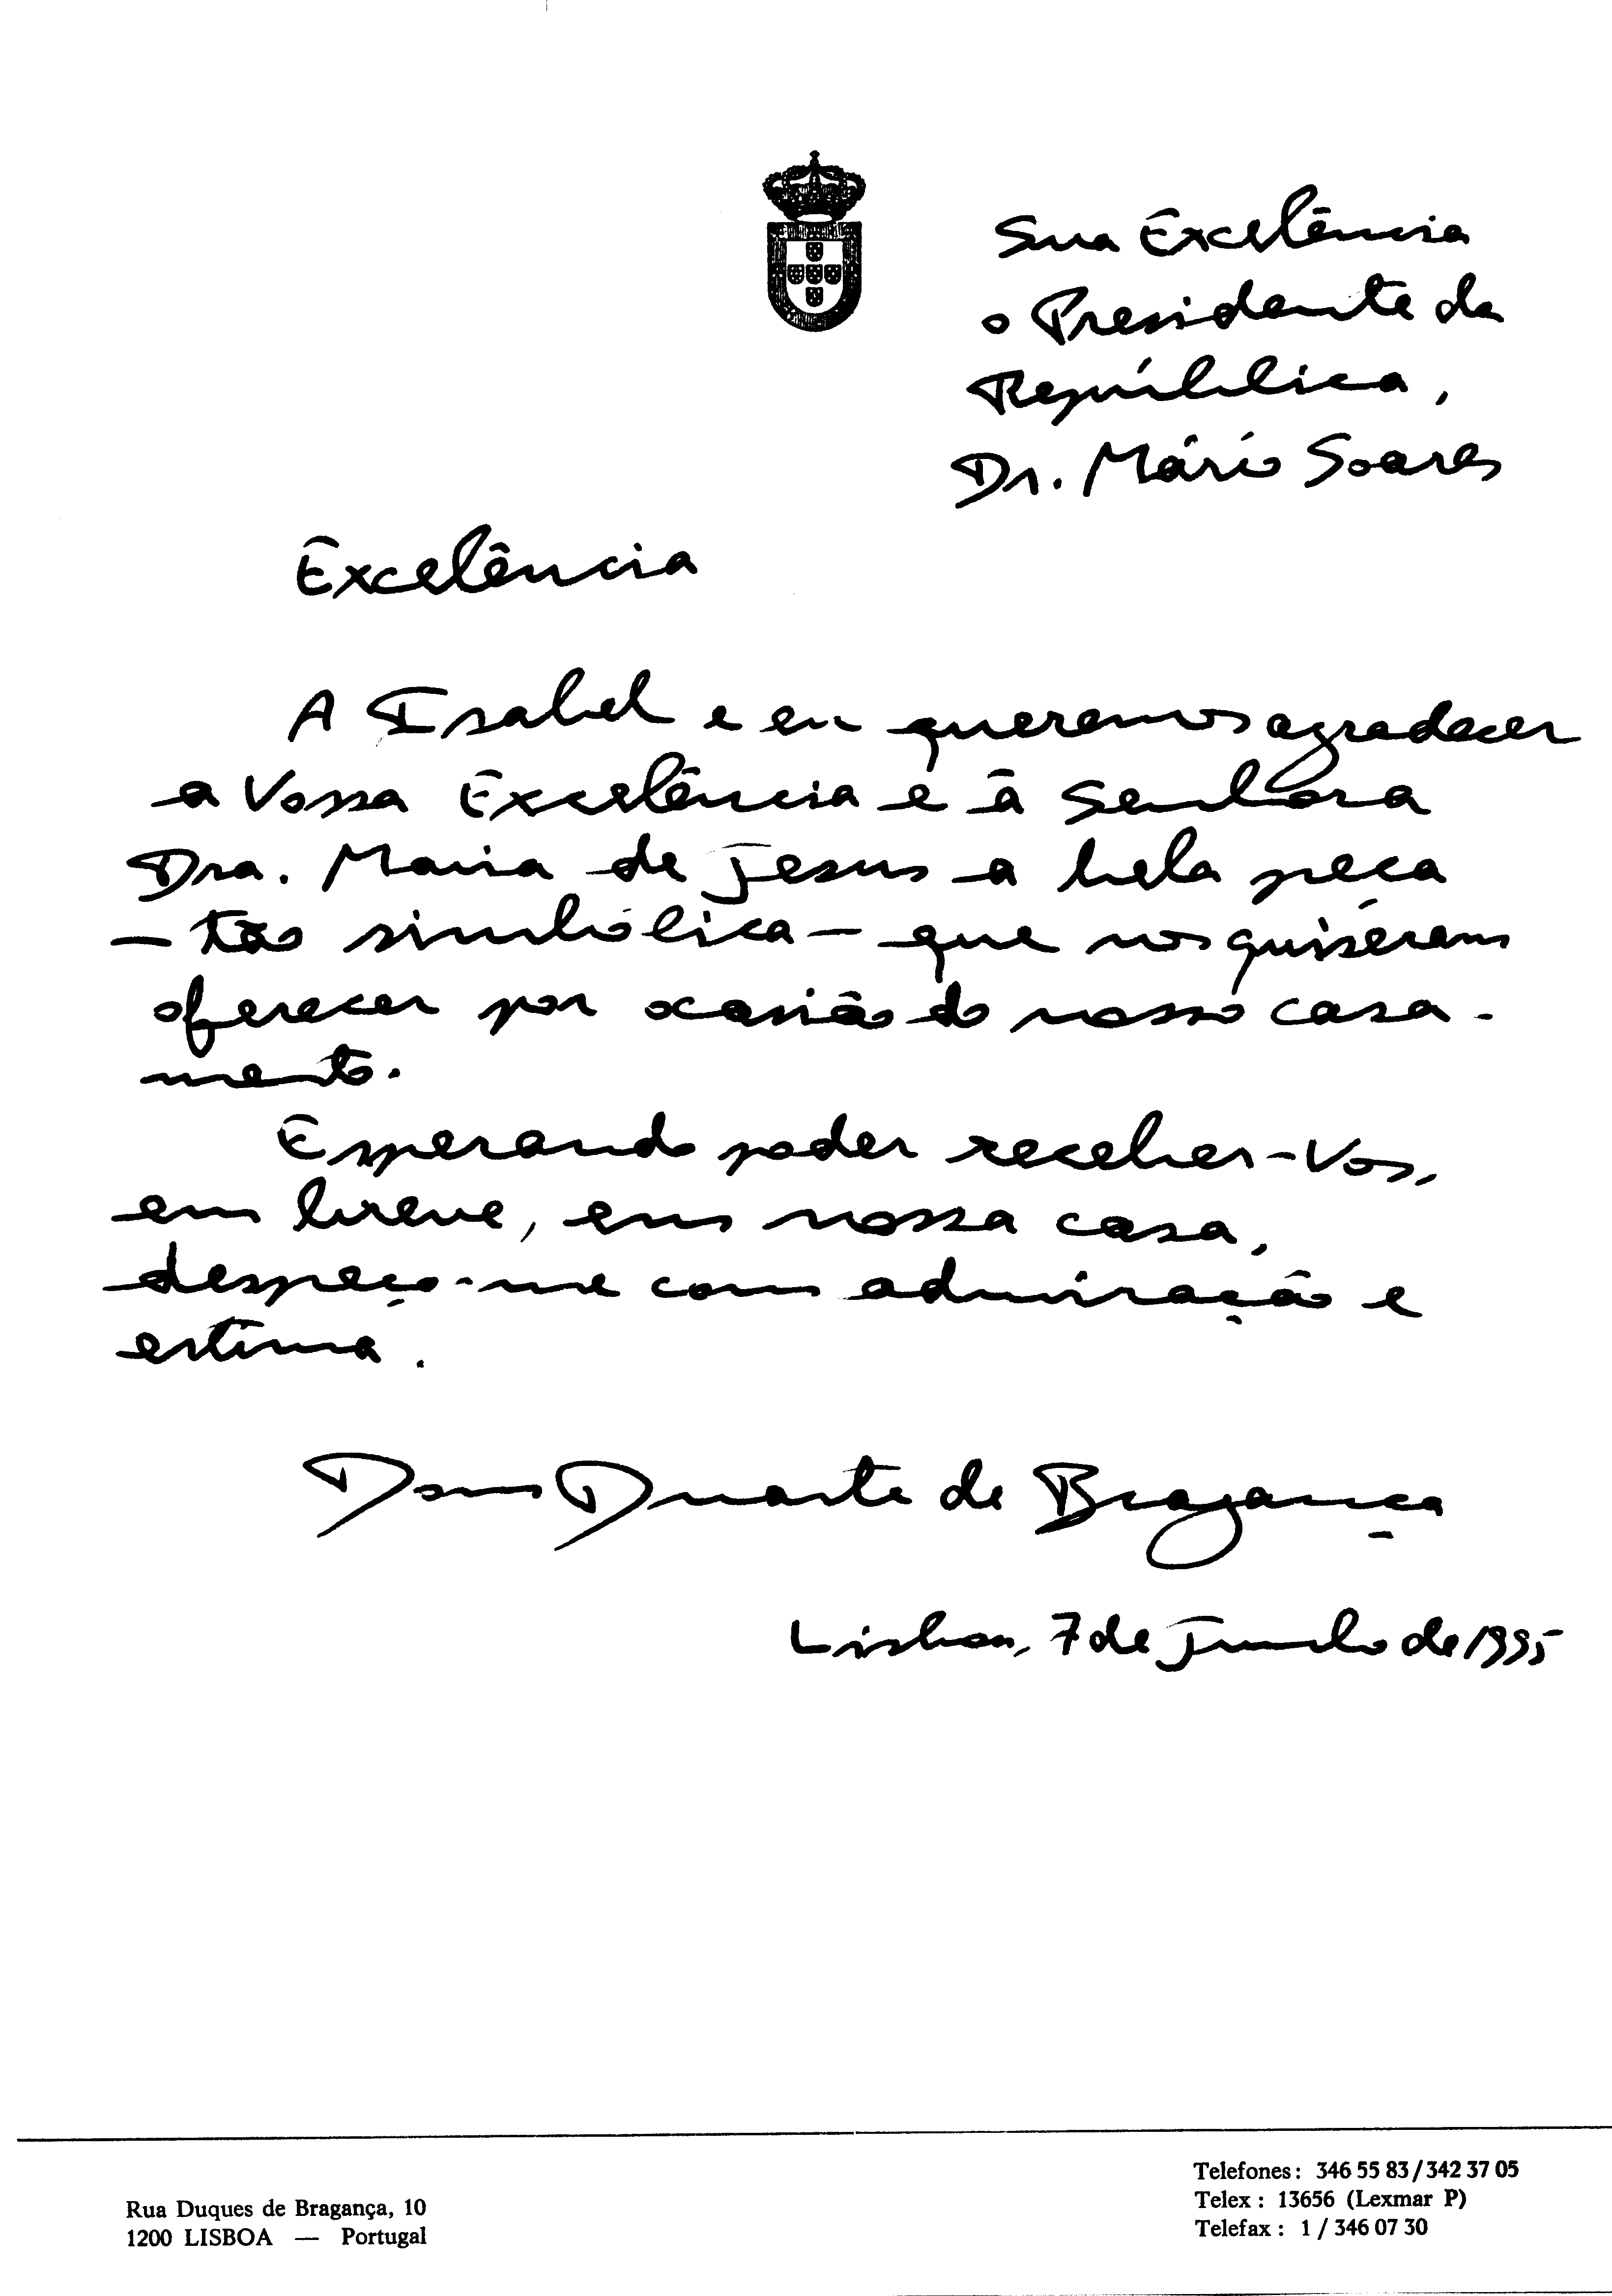 Sua Excelência
o Presidente da
República,
Dr. Mário Soares
Excelência
A Isabel e eu queremos agradecer
a Vossa Excelência e à Senhora
Dra. Maria de Jesus a bela peça
— tão simbólica — que nos quiseram
oferecer por ocasião do nosso casa-
mento.
Esperando poder receber-Vos,
em breve, em nossa casa,
despeço-me com admiração e
estima.
Dom Duarte de Bragança
Lisboa, 7 de Junho de 1995
Rua Duques de Bragança, 10
1200 LISBOA — Portugal
Telefones: 346 55 83 / 342 37 05
Telex: 13656 (Lexmar P)
Telefax: 1 / 346 07 30